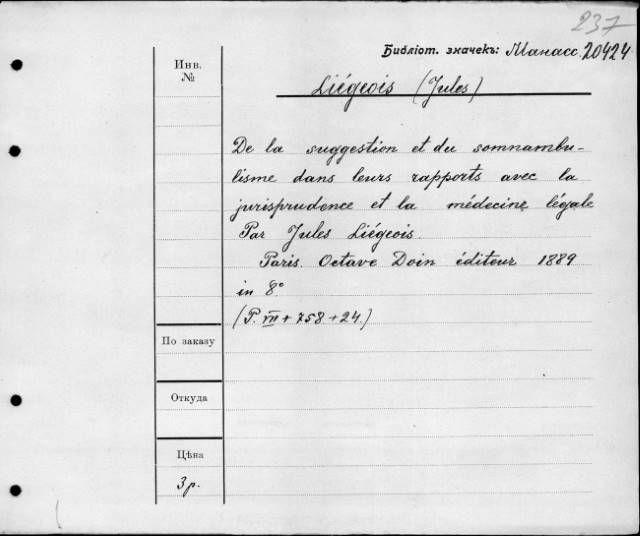 237
Библіот. значекъ: Манасс. 20424
Инв.
№
Liégeois (Jules)
De la suggestion et du somnambu-
lisme dans leurs rapports avec la
jurisprudence et la médecine légale
Par Jules Liégeois.
Paris. Octave Doin éditeur 1889
in 8°
(P. VII + 758 + 24.)
По заказу
Откуда
Цѣна
3 р.